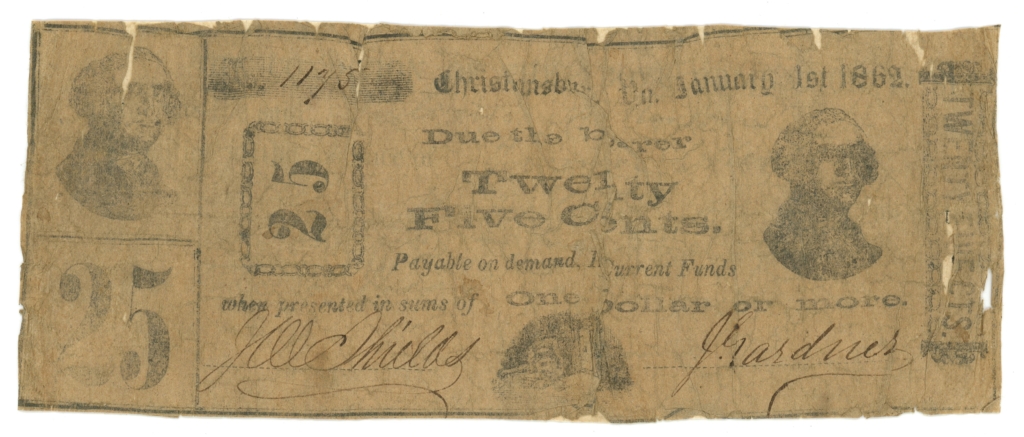 1175
Christiansburg, Va. January 1st 1862.
25
Due the bearer
Twenty
Five Cents.
Payable on demand, in Current Funds
when presented in sums of One Dollar or more.
25
J Shields
J Gardner